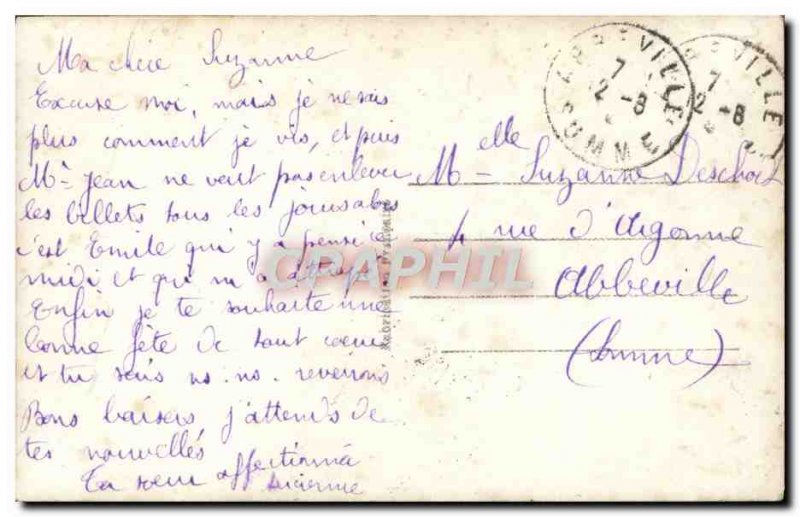 Ma chère Suzanne
Excuse moi, mais je ne sais
plus comment je vis, et puis
Mr Jean ne veut pas enlever
les billets tous les jours
c'est Emile qui y a pensé ce
midi et qui m'a
Enfin je te souhaite une
bonne fête de tout coeur
et tu sais ns. ns. reverrons
Bons baisers j'attends de
tes nouvelles
Ta soeur affectionnée
ABBEVILLE
7
2-8
SOMME
7
2-8
Melle Suzanne
4 rue d'Argonne
Abbeville
(Somme)
CPAPHIL